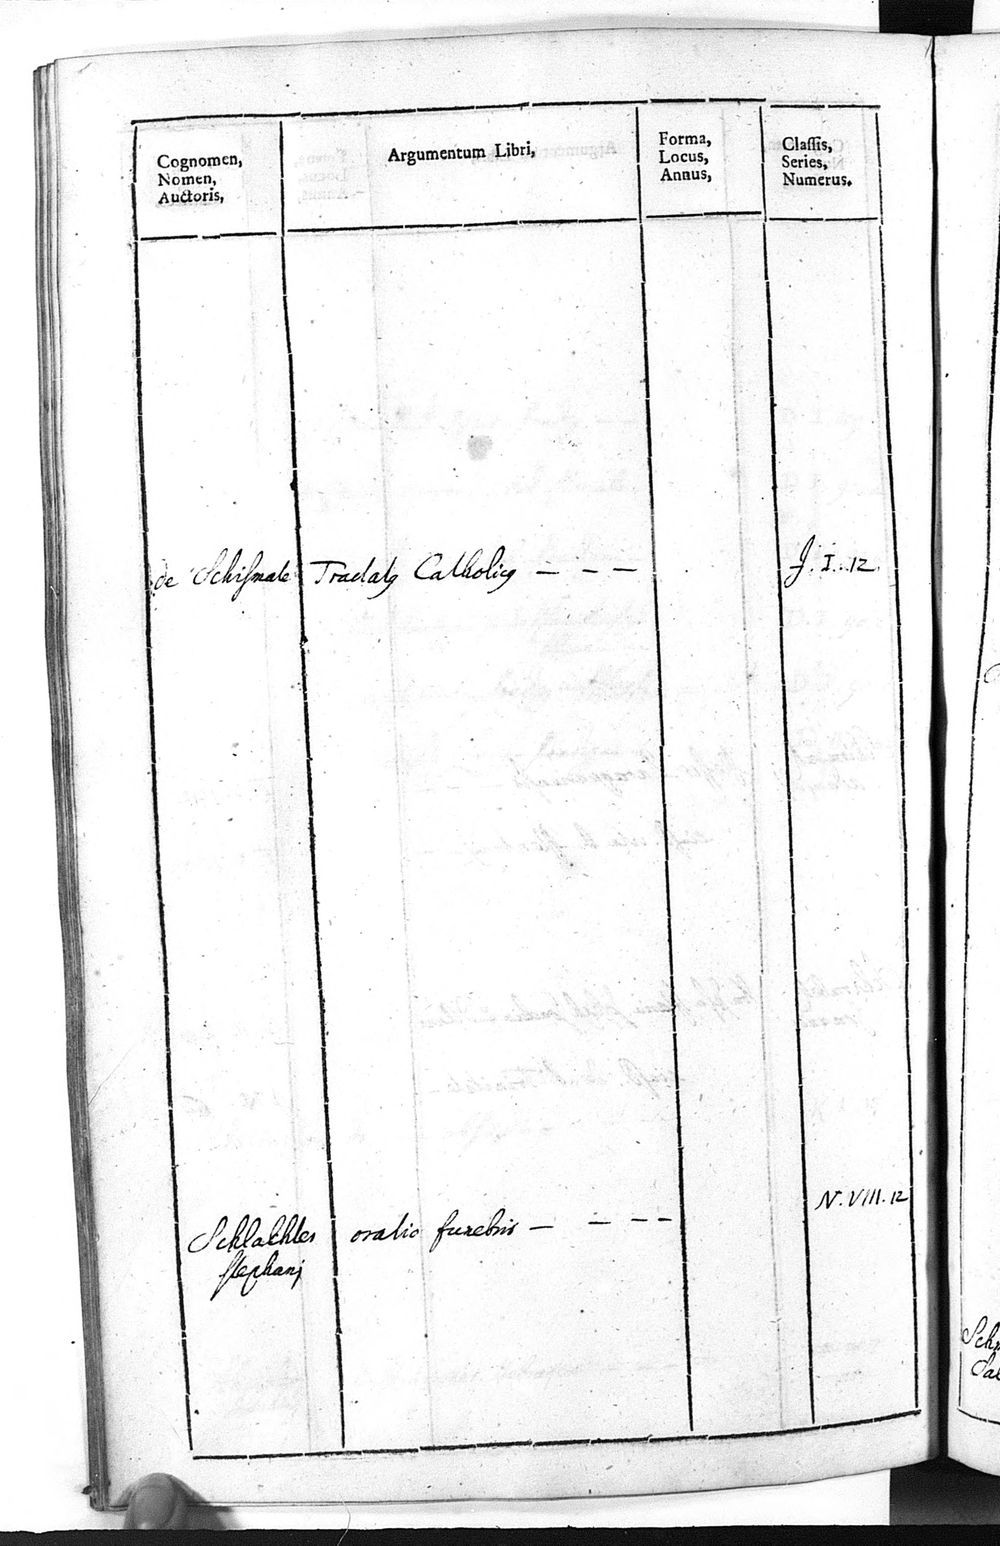 Cognomen,
Nomen,
Auctoris,
Argumentum Libri,
Forma,
Locus,
Annus,
Classis,
Series,
Numerus.
de Schismate Tractatꝰ Catholicꝰ – – – J. I. 12.
N. VIII. 12
Schlachter oratio funebris – – – –
stephanj